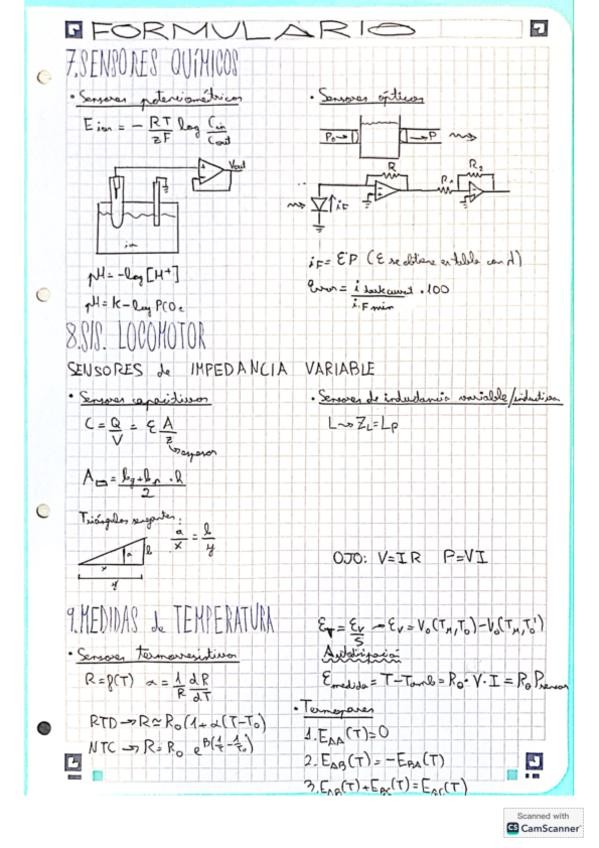 FORMULARIO
7.SENSORES QUÍMICOS
• Sensores potenciométricos
E ion = - RT/zF log Cin/Cout
Vout
ion
pH = -log [H⁺]
pH = K - log PCO₂
• Sensores ópticos
P₀ → P
R
R₁
R₂
iF
iF = ƐP (Ɛ se obtiene en tabla con λ)
Error = i darkcurrent / iF min · 100
8.SIS. LOCOMOTOR
SENSORES de IMPEDANCIA VARIABLE
• Sensores capacitivos
C = Q/V = Ɛ A/z
espesor
2
Triángulos semejantes:
a/x = b/y
a
b
x
y
• Sensores de inductancia variable/inductivos
L → ZL = Lp
OJO: V=IR P=VI
9.MEDIDAS de TEMPERATURA
• Sensores termorresistivos
R=f(T) α = 1/R dR/dT
RTD → R ≃ R₀(1+α(T-T₀)
NTC → R = R₀ e^B(1/T - 1/T₀)
ƐT = Ɛv/S → Ɛv = V₀(TM,T₀)-V₀(TM,T₀')
Ɛmedida = T-Tamb = Rθ · V · I = Rθ Psensor
• Termopares
1. EAA(T)=0
2. EAB(T) = -EBA(T)
3. EAB(T)+EBC(T) = EAC(T)
Scanned with
CS CamScanner